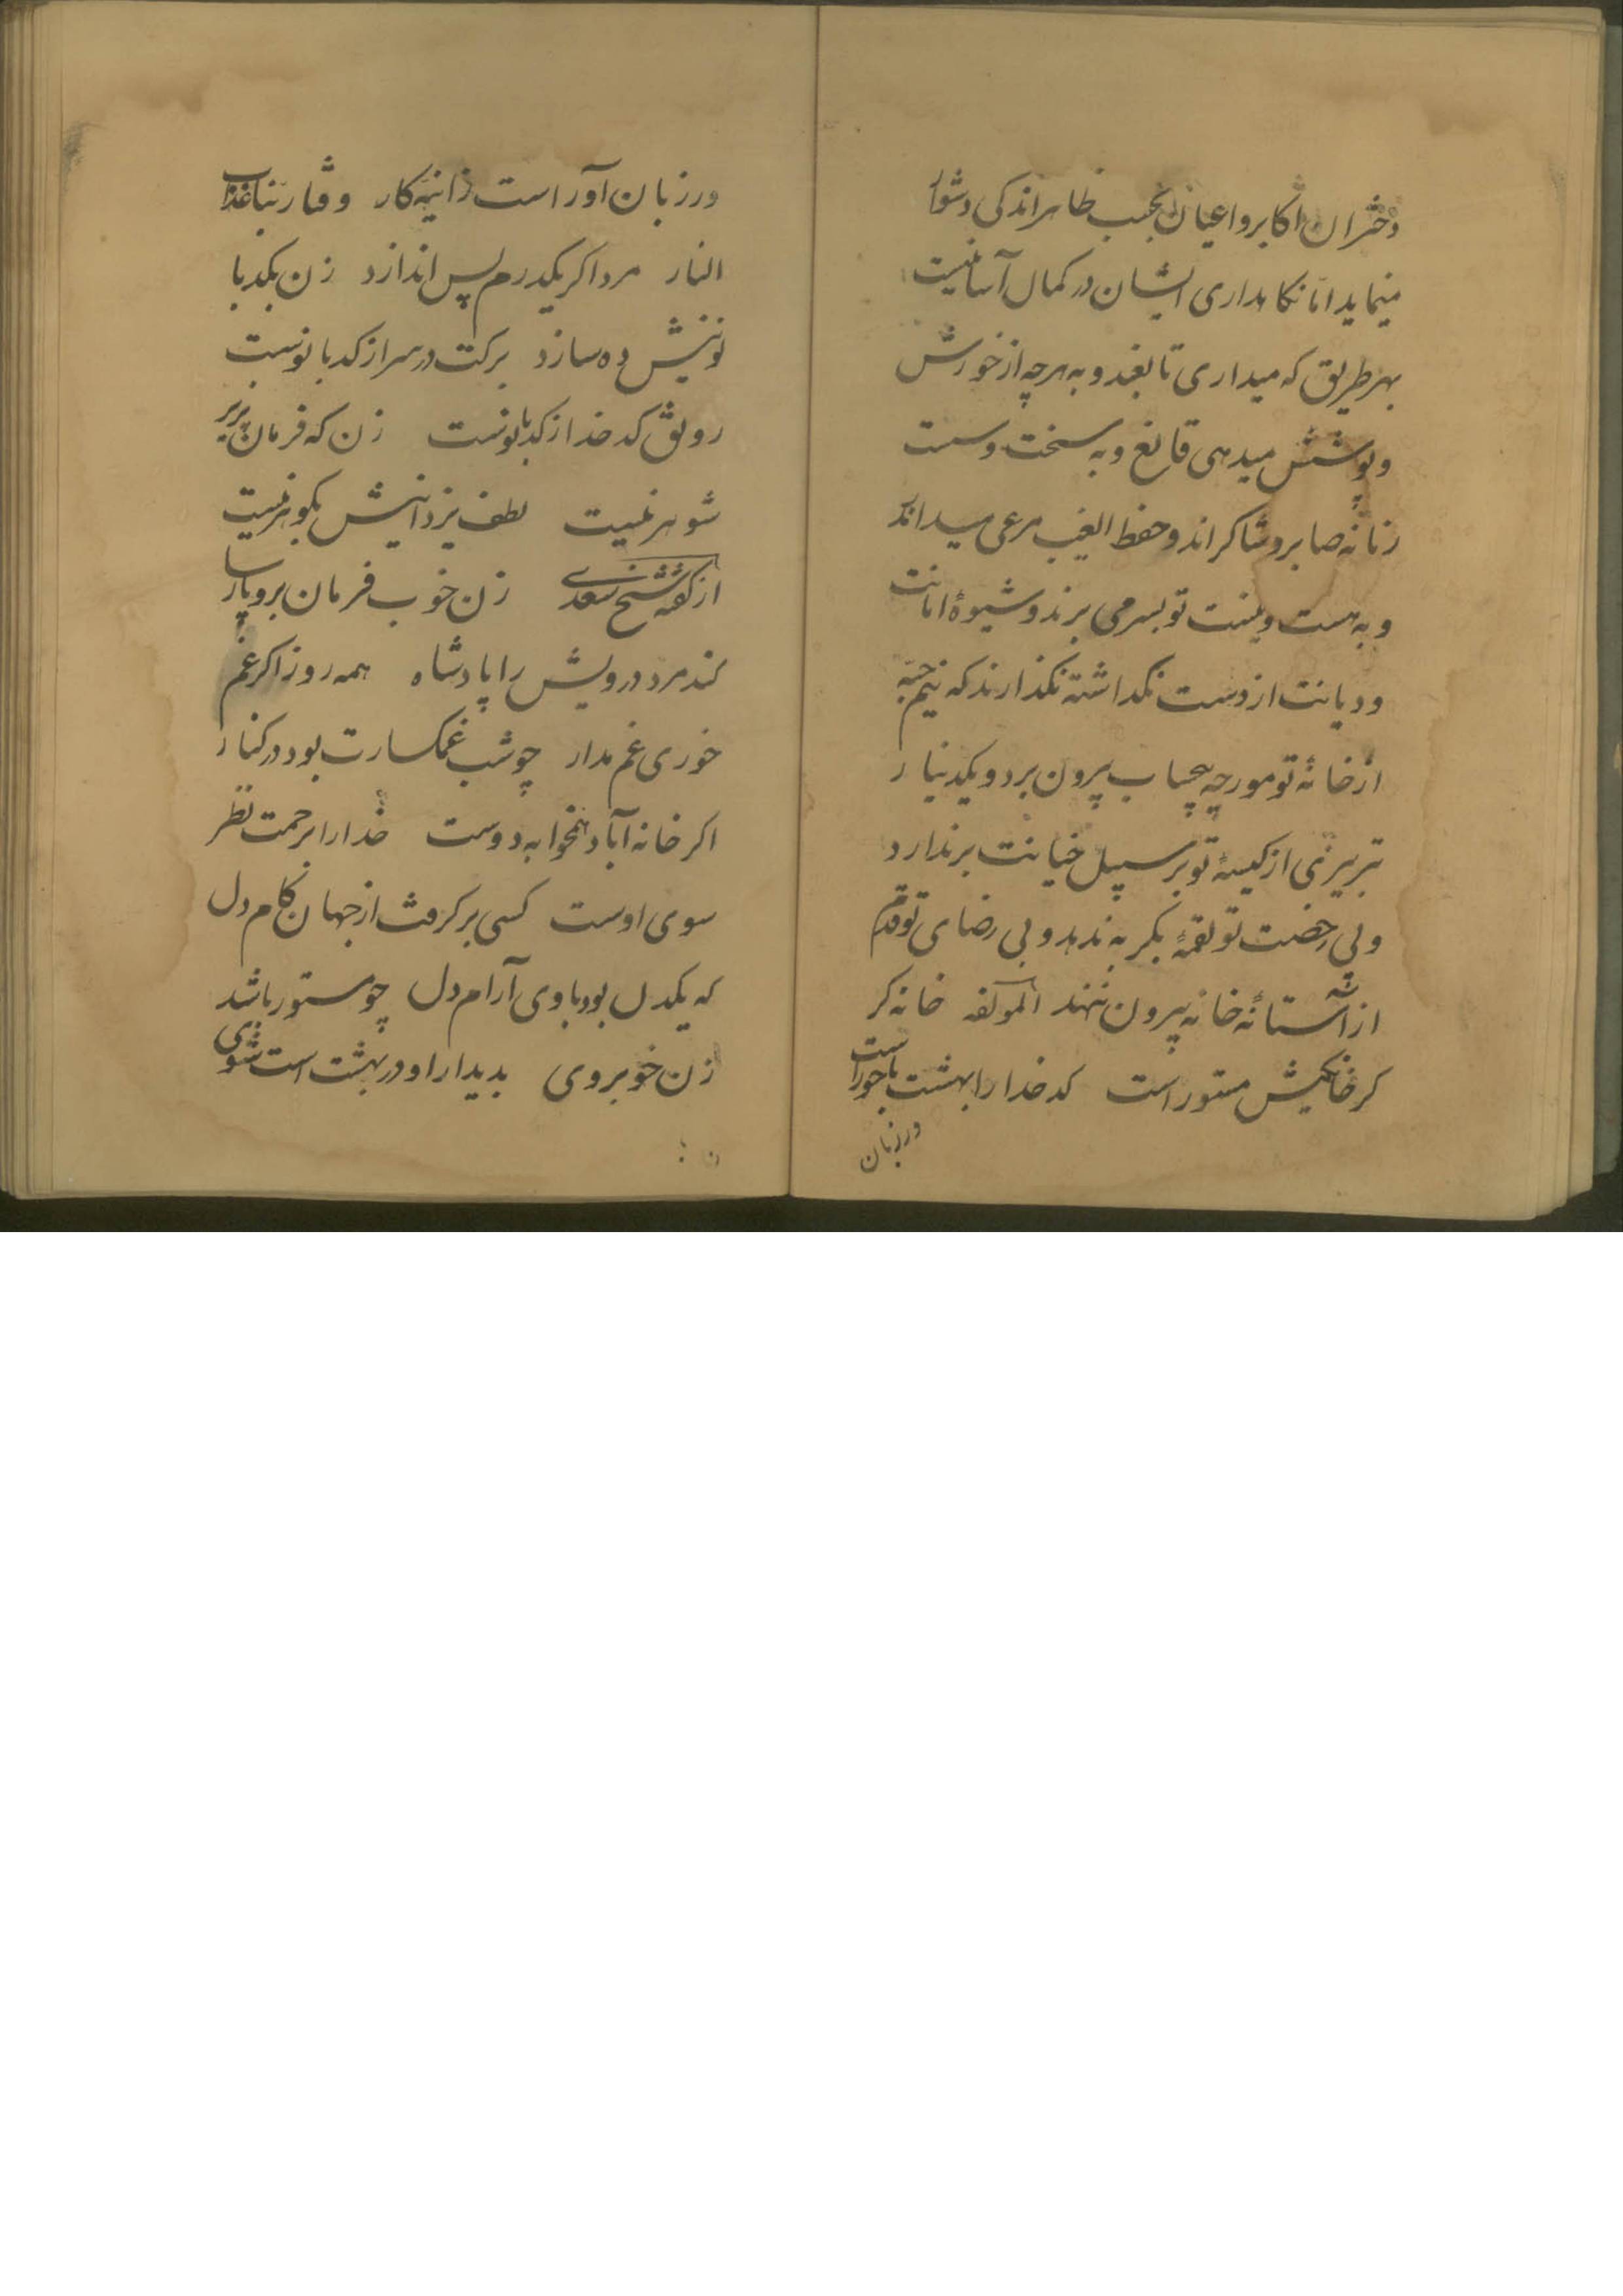 دختران اکابر و اعیان بحسب ظاهر اندکی دشوار
مینماید اما نکاهداری ایشان در کمال آسانیست
بهر طریق که میداری تابغند و به هرچه از خورش
و پوشش میدهی قانع و به سخت و سست
زمانه صابر و شاکراند و حفظ الغیب مرعی میدارند
و به هست و نیست تو بسر می برند و شیوهٔ امانت
و دیانت از دست نکذاشته نکذارند که نیم حبّه
از خانهٔ تو مورچه بیحساب بیرون برد و یکدینار
تبریزی از کیسهٔ تو بر سبیل خیانت بر ندارد
و بی رخصت تو لقمهٔ بکربه ندهد و بی رضای تو قدم
از آستانهٔ خانه بیرون ننهند لمؤلفه خانه کر
کر خانکیش مستور است کدخدا را بهشت با حور است
ور زبان
ور زبان آور است زانیه کار وقنا ربنا عذاب
النار مرد اکر یکدرم پس اندازد زن بکدبا
نوئیش ده سازد برکت در سرا ز کدبانوست
رونق کدخدا ز کدبانوست زن که فرمان پذیر
شوهر نیست لطف یزدانیش بکوهر نیست
از کفته شیخ سعدی زن خوب فرمان بر و پارسا
کند مرد درویش را پادشاه همه روز اکر غم
خوری غم مدار چو شب غمکسارت بود در کنار
اکر خانه آباد و همخوابه دوست خدا را برحمت نظر
سوی اوست کسی بر کرفت از جهان کام دل
که یکدل بود با وی آرام دل چو مستور باشد
زن خوبروی بدیدار او در بهشت است شوی